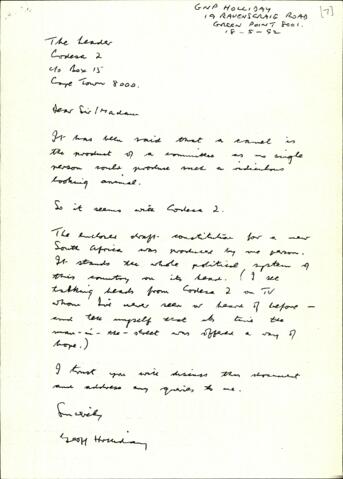 GNP HOLLIDAY
19 RAVENSCRAIG ROAD
GREEN POINT 8001.
18-5-92
[7]
The Leader
Codesa 2
c/o Box 15
Cape Town 8000.
Dear Sir/Madam
It has been said that a camel is
the product of a committee as no single
person could produce such a ridiculous
looking animal.
So it seems with Codesa 2.
The enclosed draft constitution for a new
South Africa was produced by one person.
It stands the whole political system of
this country on its head. (I see
talking heads from Codesa 2 on TV
whom I've never seen or heard of before -
and tell myself that its time the
man-in-the-street was offered a ray of
hope.)
I trust you will discuss this document
and address any queries to me.
Sincerely
Geoff Holliday